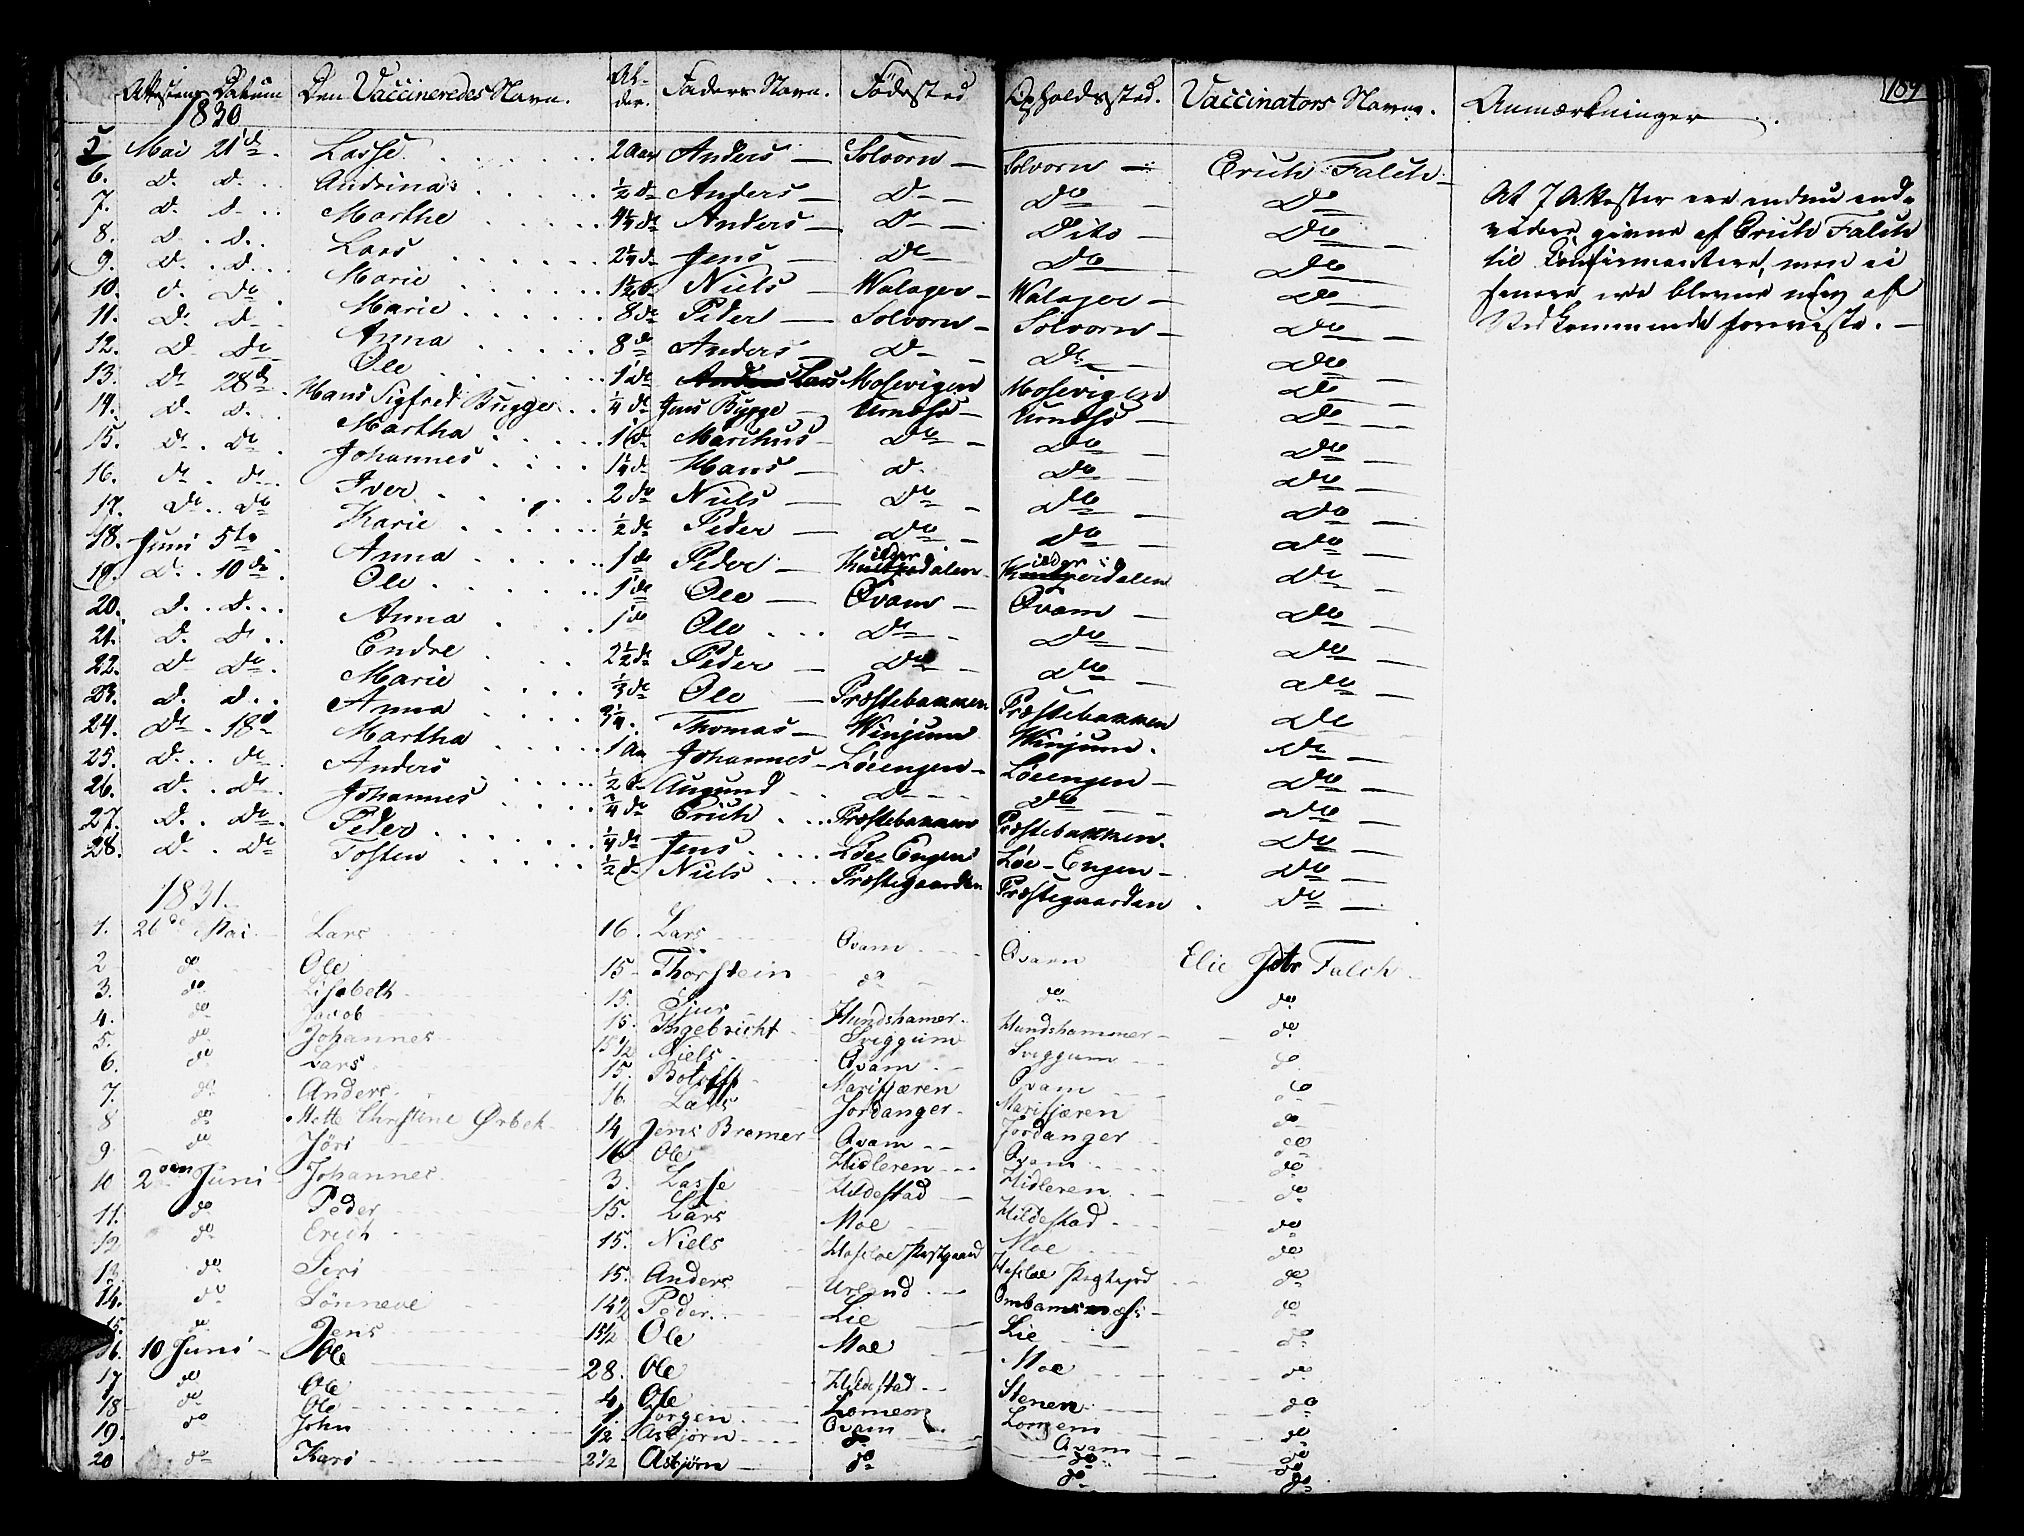 Attestens Datum Den Vaccineredes Navn. Al-der. Faders Navn. Födested Opholdssted. Vaccinators Navn. Anmærkninger 109
1830
5 Mai 21de Lasse 2 Aar Anders Solvorn Solvorn Erich Falch
6. d. d. Andrina ½ do Anders D Do Do
7. d. d. Marthe 4¼ do Anders D Dito Do
8. d. d. Lars 2¼ do Jens do Do Do
9. d. d. Marie 1½ Niels Walager Walager Do
10. d. do Marie 8 do Peder Solvorn Solvorn Do
11. do d. Anna 8 do Anders D Do Do
12. D. do Ole 1 do Lars Mosevigen Mosevigen Do
13. do 28de Hans Sigfred Bugge ¼ do Jens Bugge Urness Urness Do
14. d. d. Martha 16 d. Marthus Do Do Do
15. do do Johannes 1¼ do Hans d. Do Do
16. do d. Iver 2 do Niels Do Do Do
17. do do Karie ½ do Peder Do Do Do
18. Juni 5te Anna 1 do Peder Do
19. d. 10de Ole 1 do Ole Qvam Qvam Do
20. d. d. Anna 1 do Ole Do Do Do
21. d. do Endre 2½ do Peder Do Do Do
22. d. do Marie ⅓ do Ole Præstebakken Præstebakken Do
23. d. d. Anna Thomas Winjum Winjum Do
24. do 18d Martha 1 Aar Johannes Løiengen Løiengen Do
25. d. do Anders ½ d Amund D Do Do
26. d. do Johannes ¾ do Erich Præstebakken Præstebakken Do
27. d. do Peder ¼ do Jens Løe Engen Løe-Engen Do
28. d. do Tosten ½ d Niels Præstegaarden Præstegaarden Do
At 7 Attester ere endnu end-
videre givne af Erich Falch
til Confirmantere, men ei
senere ere blevne mig af
Vedkommende foreviste.
1831.
1. 26de Mai Lars 16. Lars Qvam Qvam Elie Falch
2 do Ole 15 Thorstein do do do
3. do Lisabeth 15. Sjur Hundshamer Hundshammer do
4. do Jacob 15. Ingebricht Sviggum Sviggum do
5. do Johannes 15½ Niels Qvam Qvam do
6. do Lars 15. Botolf Marifjæren Marifjæren do
7. do Anders 16. Lars Jordanger Jordanger do
8 do Mette Christine Ørbek 14 Jens Bremer Qvam Qvam do
9. do Jöri 16 Ole Hidleren Hidleren do
10 2den Juni Johannes 3. Lasse Hildestad Hildestad do
11. do Peder 15. Lars Moe Moe do
12 do Erich 15. Niels Hafsloe Hafsloe do
13. do Siri 15. Anders do
14. do Sönneve 14½ Peder Lie Lie do
15. do Jens 15½ Ole Moe Moe do
16. 10 Juni Ole 28. Ole Hildestad Stenen do
17 do Ole 4 Ole Lomem Lomem do
18 do Ole Jörgen Qvam Qvam do
19. do John ½ Asbjörn do do do
20 do Kari 2½ Asbjörn do do do